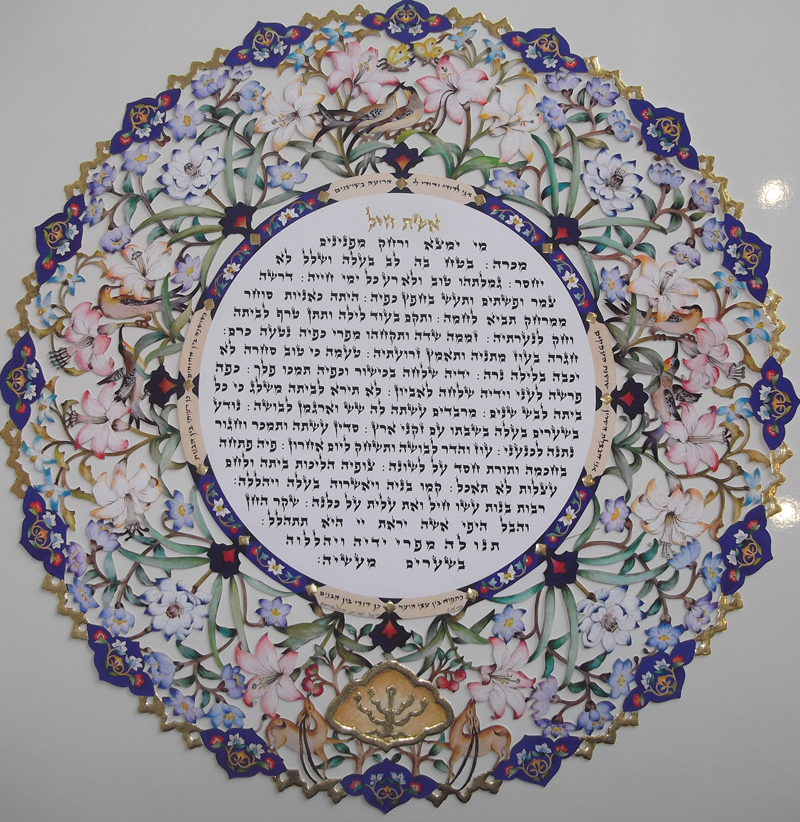 אשת חיל
מי ימצא ורחק מפנינים
מכרה: בטח בה לב בעלה ושלל לא
יחסר: גמלתהו טוב ולא רע כל ימי חייה: דרשה
צמר ופשתים ותעש בחפץ כפיה: היתה כאניות סוחר
ממרחק תביא לחמה: ותקם בעוד לילה ותתן טרף לביתה
וחק לנערתיה: זממה שדה ותקחהו מפרי כפיה נטעה כרם:
חגרה בעוז מתניה ותאמץ זרועתיה: טעמה כי טוב סחרה לא
יכבה בלילה נרה: ידיה שלחה בכישור וכפיה תמכו פלך: כפה
פרשה לעני וידיה שלחה לאביון: לא תירא לביתה משלג כי כל
ביתה לבש שנים: מרבדים עשתה לה שש וארגמן לבושה: נודע
בשערים בעלה בשבתו עם זקני ארץ: סדין עשתה ותמכר וחגור
נתנה לכנעני: עוז והדר לבושה ותשחק ליום אחרון: פיה פתחה
בחכמה ותורת חסד על לשונה: צופיה הליכות ביתה ולחם
עצלות לא תאכל: קמו בניה ויאשרוה בעלה ויהללה:
רבות בנות עשו חיל ואת עלית על כלנה: שקר החן
והבל היפי אשה יראת יי היא תתהלל:
תנו לה מפרי ידיה ויהללוה
בשערים מעשיה:
אני לדודי ודודי לי הרועה בשושנים
אני חבצלת השרון
שושנת העמקים
כתפוח בין עצי היער
כן דודי בין הבנים
כשושנה בין החוחים
כן רעיתי בין הבנות